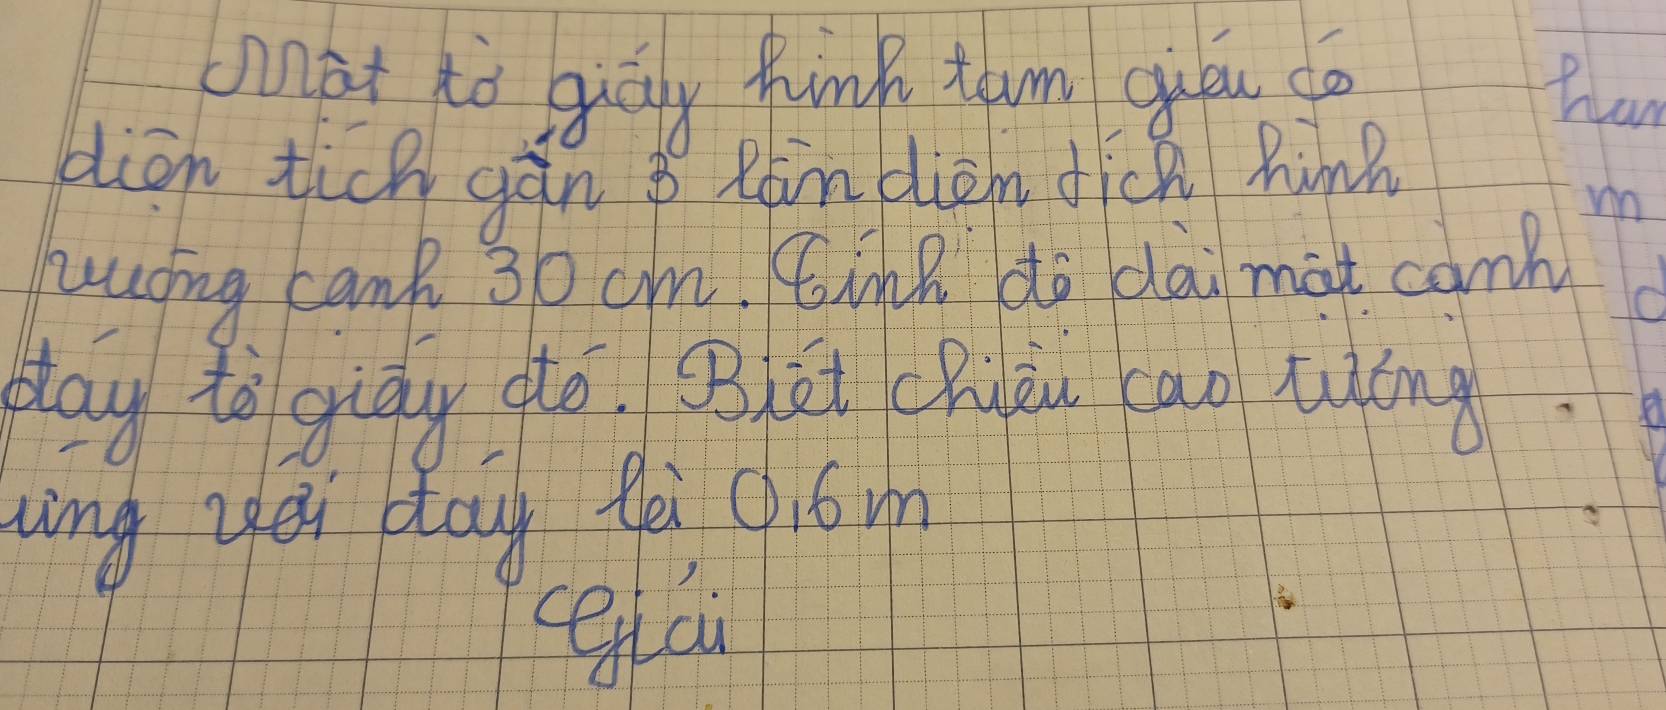 Một tờ giấy hình tam giác có
diện tích gấn 3 lần diện tích hình
vuông cạnh 30 cm. Tính độ dài một cạnh
đáy tờ giấy đó. Biết chiều cao tương
ứng với đáy là 0,6 m
Giải